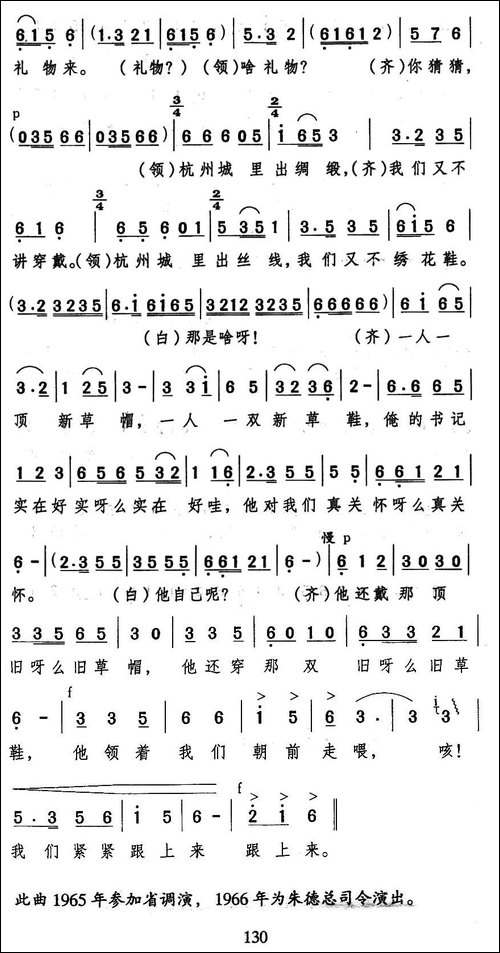 6 1 5 6 | (1.3 21 | 6 1 5 6) | 5.3 2 | (6 1 6 1 2) | 5 7 6 |
礼 物来。 (礼物?) (领)啥 礼物? (齐)你猜猜,
p 3/4 2/4
(035 66 | 035 66) | 6 6 6 05 | i 65 3 | 3.2 35 |
(领)杭州城 里出绸 缎,(齐)我们又不
3/4 2/4
6 1 6 | 6 5 6 01 | 5 35 1 | 3.5 35 | 6 i 5 6 |
讲穿戴。(领)杭州城 里出丝 线,我们又不绣花鞋。
(3.2 3235 | 6.i 6165 | 3212 3235 | 66666) | 6 i 65 |
(白)那是啥呀! (齐)一人一
3.2 | 1 25 | 3 - | 3 3 i | 6 5 | 32 36 | 2 - | 6.6 65 |
顶 新草 帽,一人 一双新 草 鞋,俺的书记
1 2 3 | 6 5 6 5 32 | 1 16 | 2.3 55 | 5 5 | 6 6 1 21 |
实在好实呀么实在 好哇,他对我们真关 怀呀么真关
慢 p
6 - | (2.3 55 | 35 55 | 661 21 | 6 -) | 6 1 2 | 30 30 |
怀。 (白)他自己呢? (齐)他还戴那 顶
335 65 | 3 0 | 3 3 5 | 60 10 | 633 21 |
旧呀么旧草 帽, 他还穿那 双 旧呀么旧草
f > > >
6 - | 3 3 5 | 6 6 | i 5 6 | 3. 3 | i 3 |
鞋, 他领着 我们 朝前走喂, 咳!
f > > >
5.3 56 | i 5 | 6 - | 2 i 6 ‖
我们紧紧跟上来 跟上来。
此曲1965年参加省调演,1966年为朱德总司令演出。
130